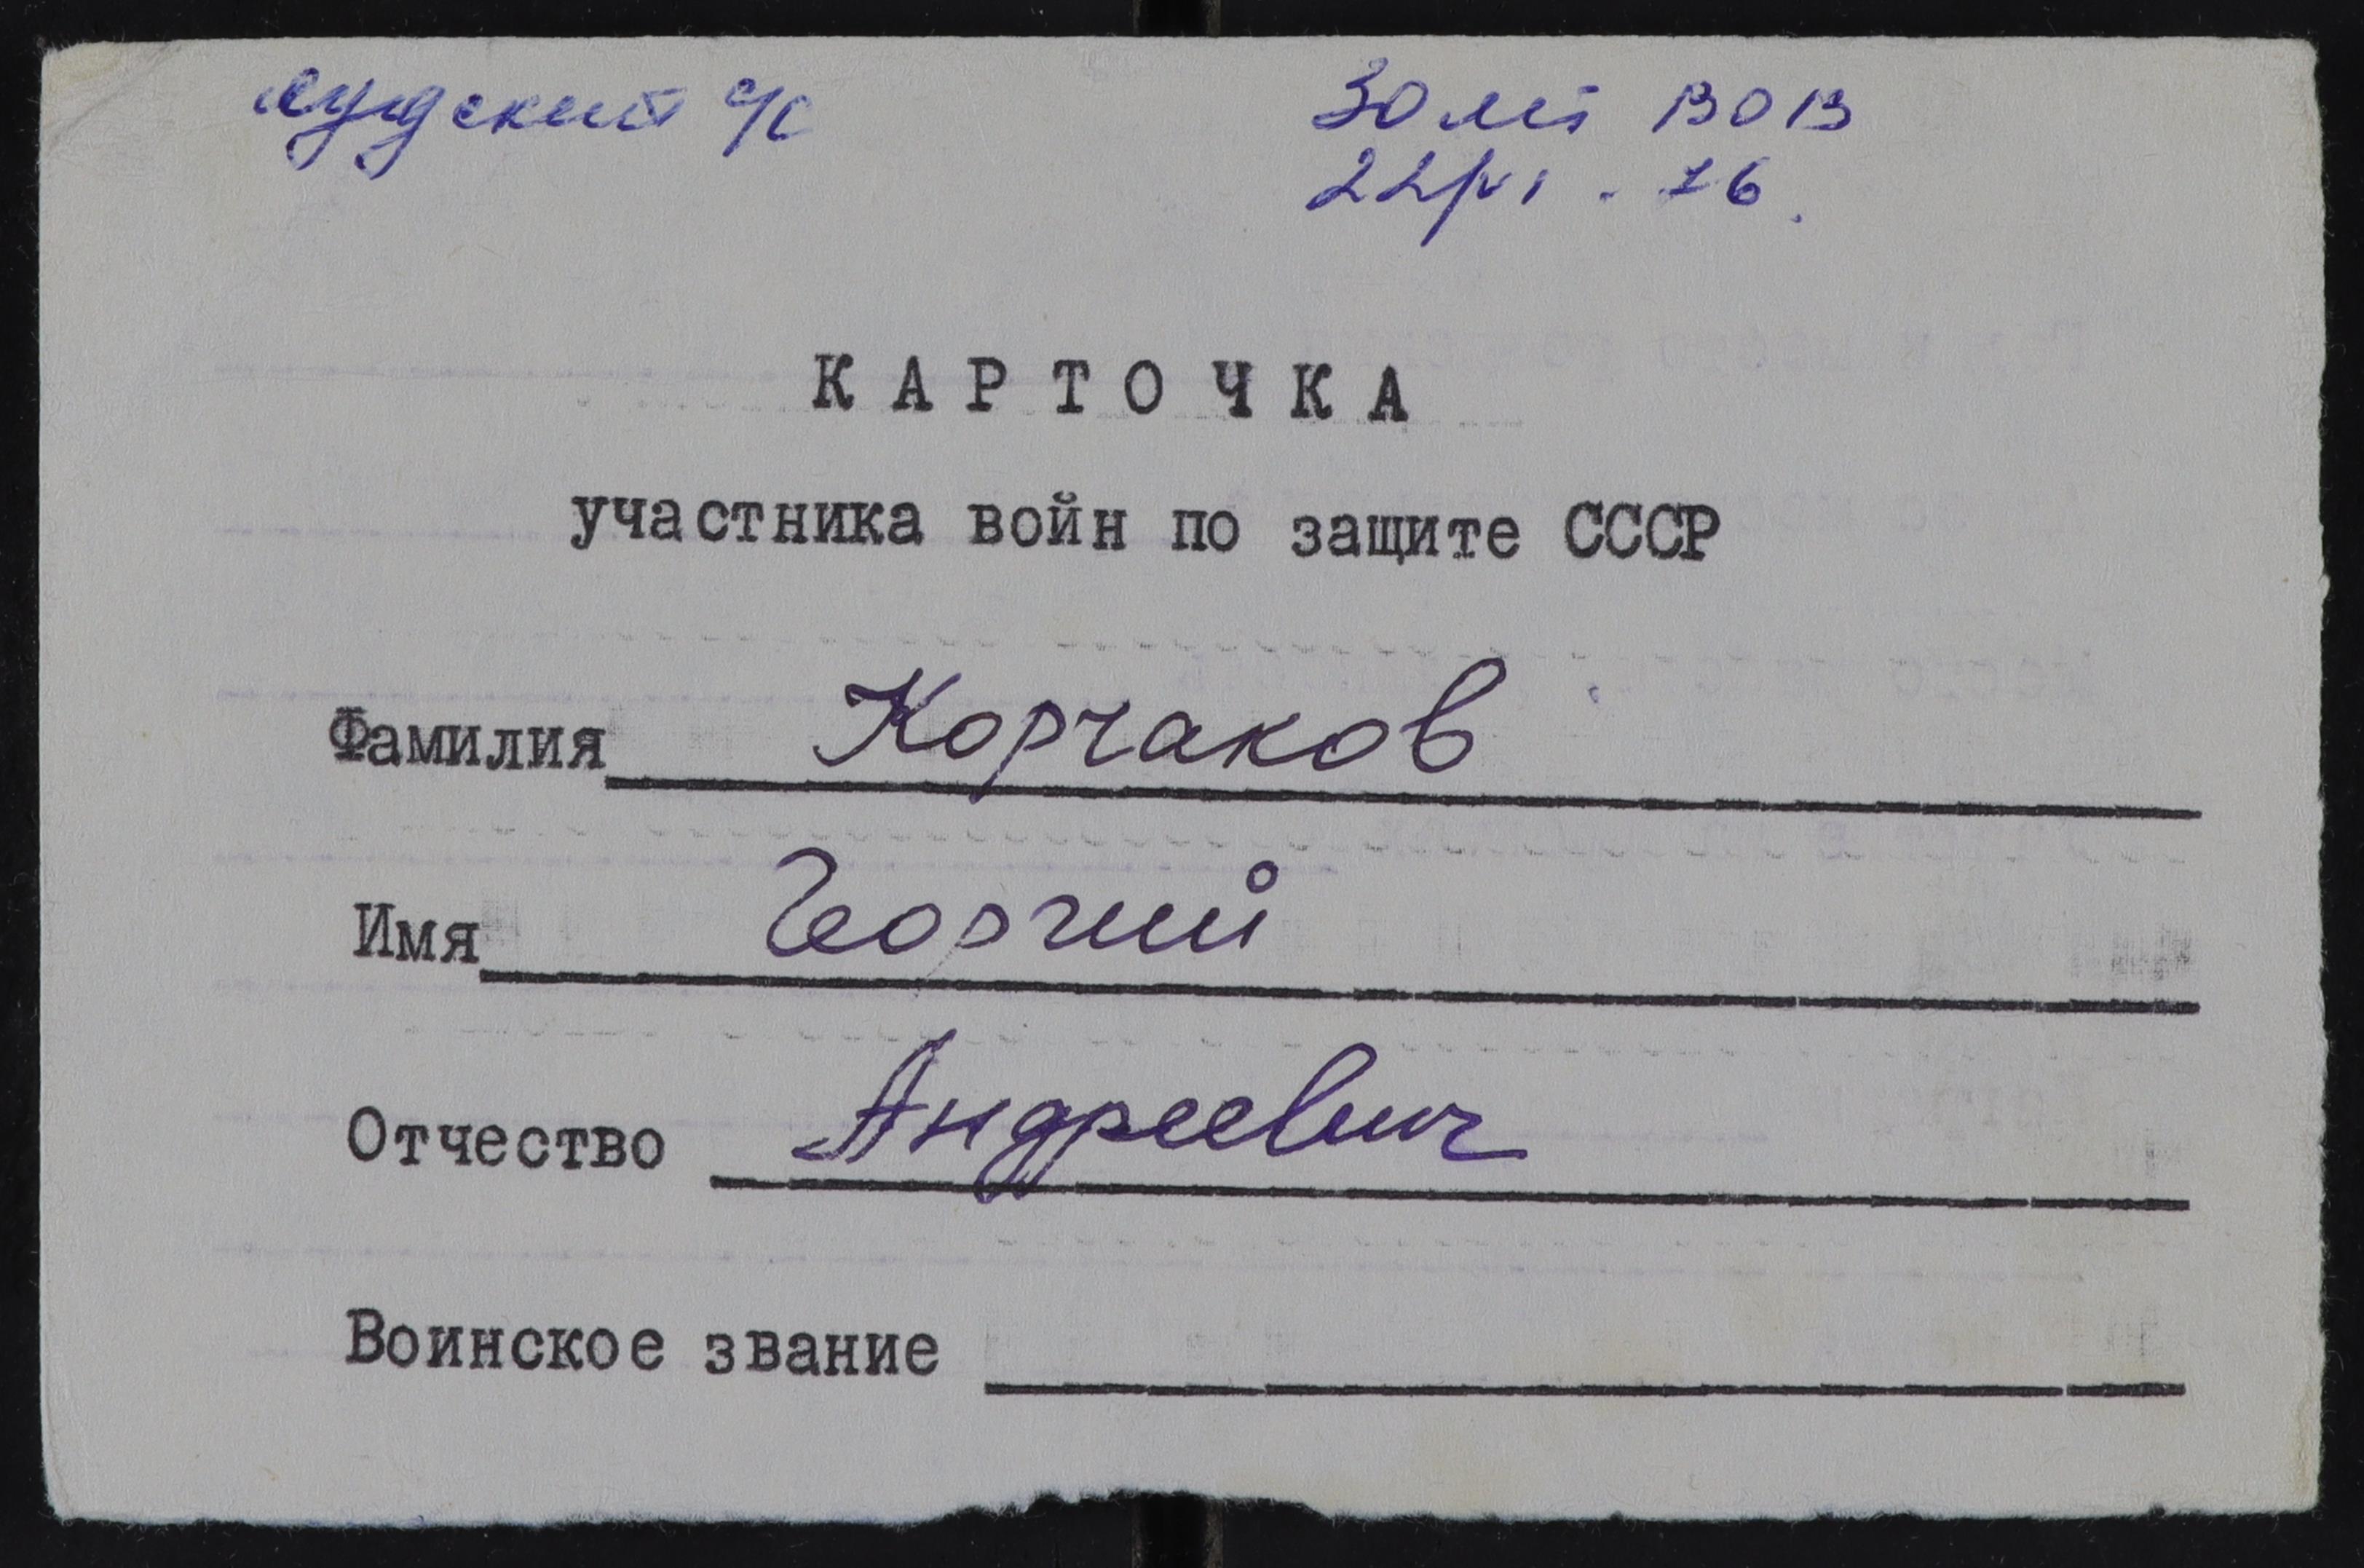 Лудский с/с
30 лет ВОВ
22/VI . 76.
КАРТОЧКА
участника войн по защите СССР
Фамилия Корчаков
Имя Георгий
Отчество Андреевич
Воинское звание